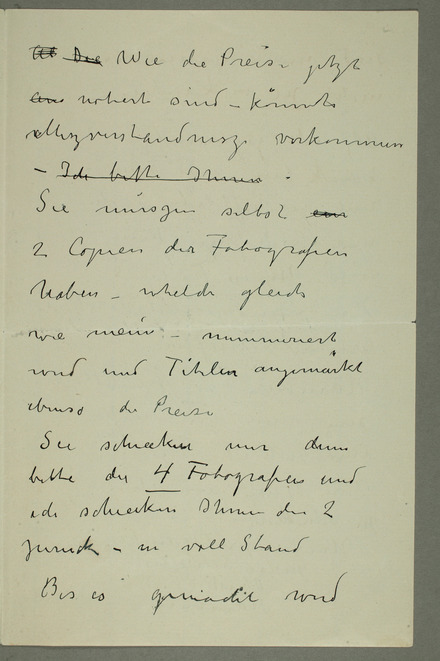 Die Wie die Preise jetzt
aus notiert sind – könnte
Miszverständnisze vorkommen
– Ich bitte Ihnen.
Sie müszen selbst
2 Copien der Fotografien
haben – gleich
wie mein – nummeriert
wird und Titeln angemärkt
ebenso die Preise
Sie schicken mir dann
bitte die 4 Fotografien und
ich schicken Ihnen die 2
zurück – in voll Stand
Bis es gemacht wird